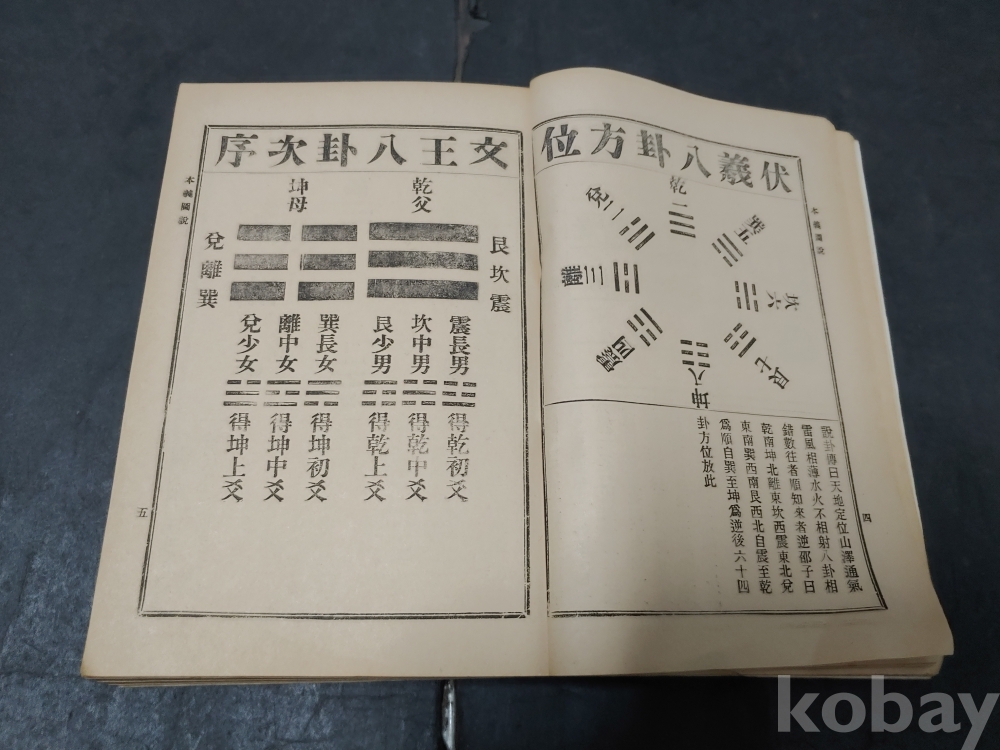 伏羲八卦方位
本義圖說
乾一
兌二
離三
震四
巽五
坎六
艮七
坤八
說卦傳曰天地定位山澤通氣
雷風相薄水火不相射八卦相
錯數往者順知來者逆邵子曰
乾南坤北離東坎西震東北兌
東南巽西南艮西北自震至乾
爲順自巽至坤爲逆後六十四
卦方位放此
四
文王八卦次序
本義圖說
乾父
坤母
艮坎震
兌離巽
震長男
坎中男
艮少男
巽長女
離中女
兌少女
得乾初爻
得乾中爻
得乾上爻
得坤初爻
得坤中爻
得坤上爻
五
kobay